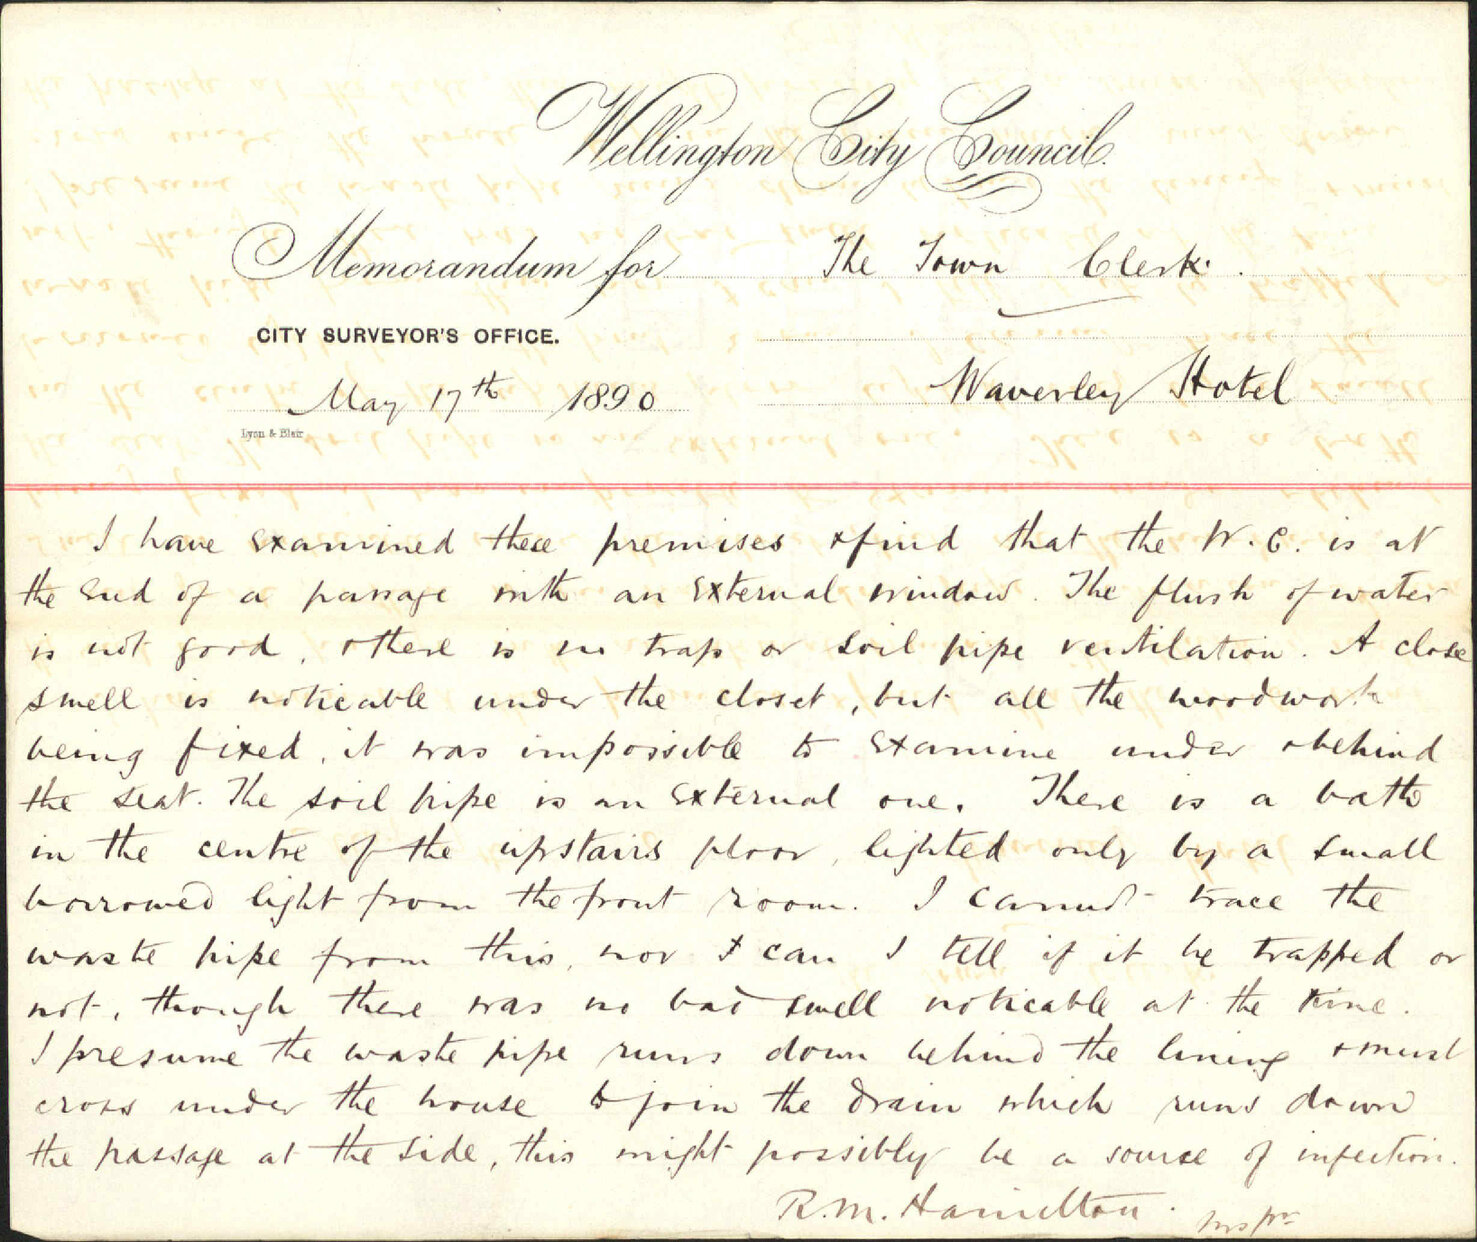 Wellington City Council.
Memorandum for The Town Clerk.
CITY SURVEYOR'S OFFICE.
May 17th 1890 Waverley Hotel
Lyon & Blair
I have examined these premises & find that the W.C. is at
the end of a passage with an external window. The flush of water
is not good, & there is no trap or soil pipe ventilation. A close
smell is noticable under the closet, but all the woodwork
being fixed, it was impossible to examine under & behind
the seat. The soil pipe is an external one. There is a bath
in the centre of the upstairs floor, lighted only by a small
borrowed light from the front room. I cannot trace the
waste pipe from this, nor can I tell if it be trapped or
not, though there was no bad smell noticable at the time.
I presume the waste pipe runs down behind the lining & must
cross under the house to join the drain which runs down
the passage at the side, this might possibly be a source of infection.
R.M. Hamilton. Inspr